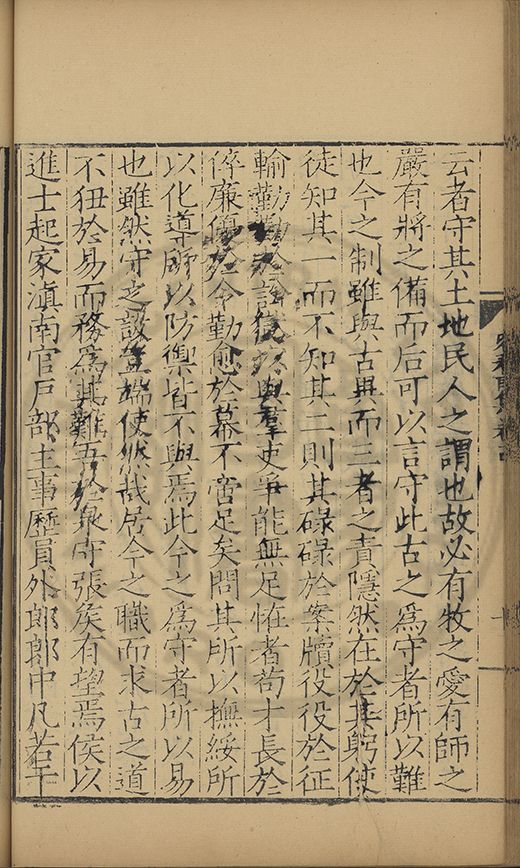 云者守其土地民人之謂也故必有牧之愛有師之
嚴有將之備而后可以言守此古之為守者所以難
也今之制雖與古異而三者之責隱然在於其躬使
徒知其一而不知其三則其碌碌於案牘役役於征
輸勤於訟獄與羣吏爭能無足恠者苟才長於
倅廉優於令勤愈於幕不啻足矣問其所以撫綏所
以化導所以防禦皆不與焉此今之為守者所以易
也雖然守之設豈端使然哉居今之職而求古之道
不狃於易而務為其難吾於泉守張矦有望焉侯以
進士起家滇南官戶部主事歷員外郎郎中凡若干